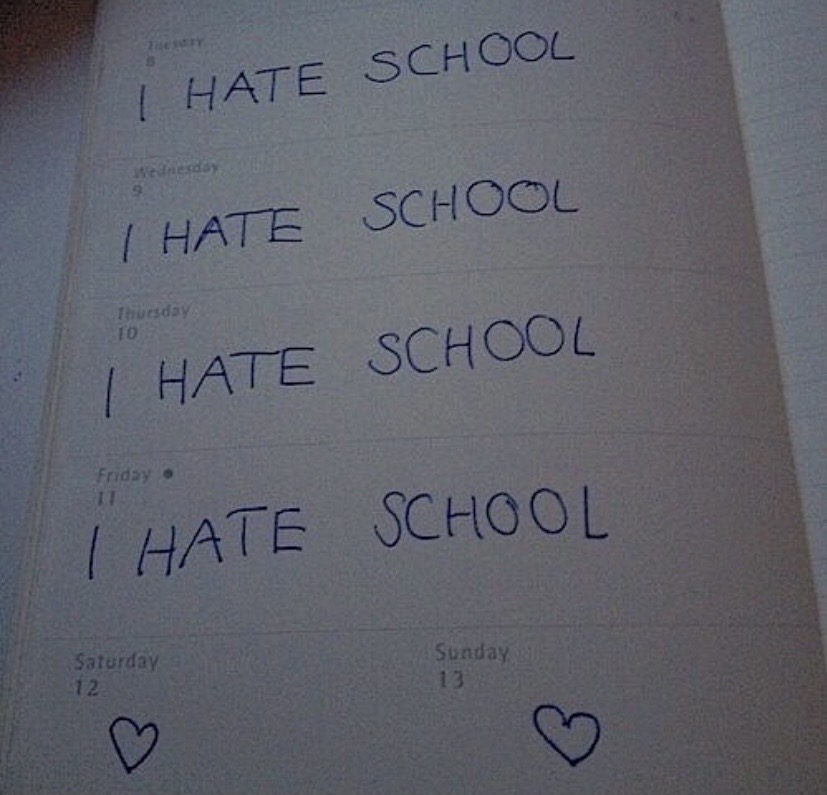 Tuesday
8
I HATE SCHOOL
Wednesday
9
I HATE SCHOOL
Thursday
10
I HATE SCHOOL
Friday
11
I HATE SCHOOL
Saturday
12
Sunday
13